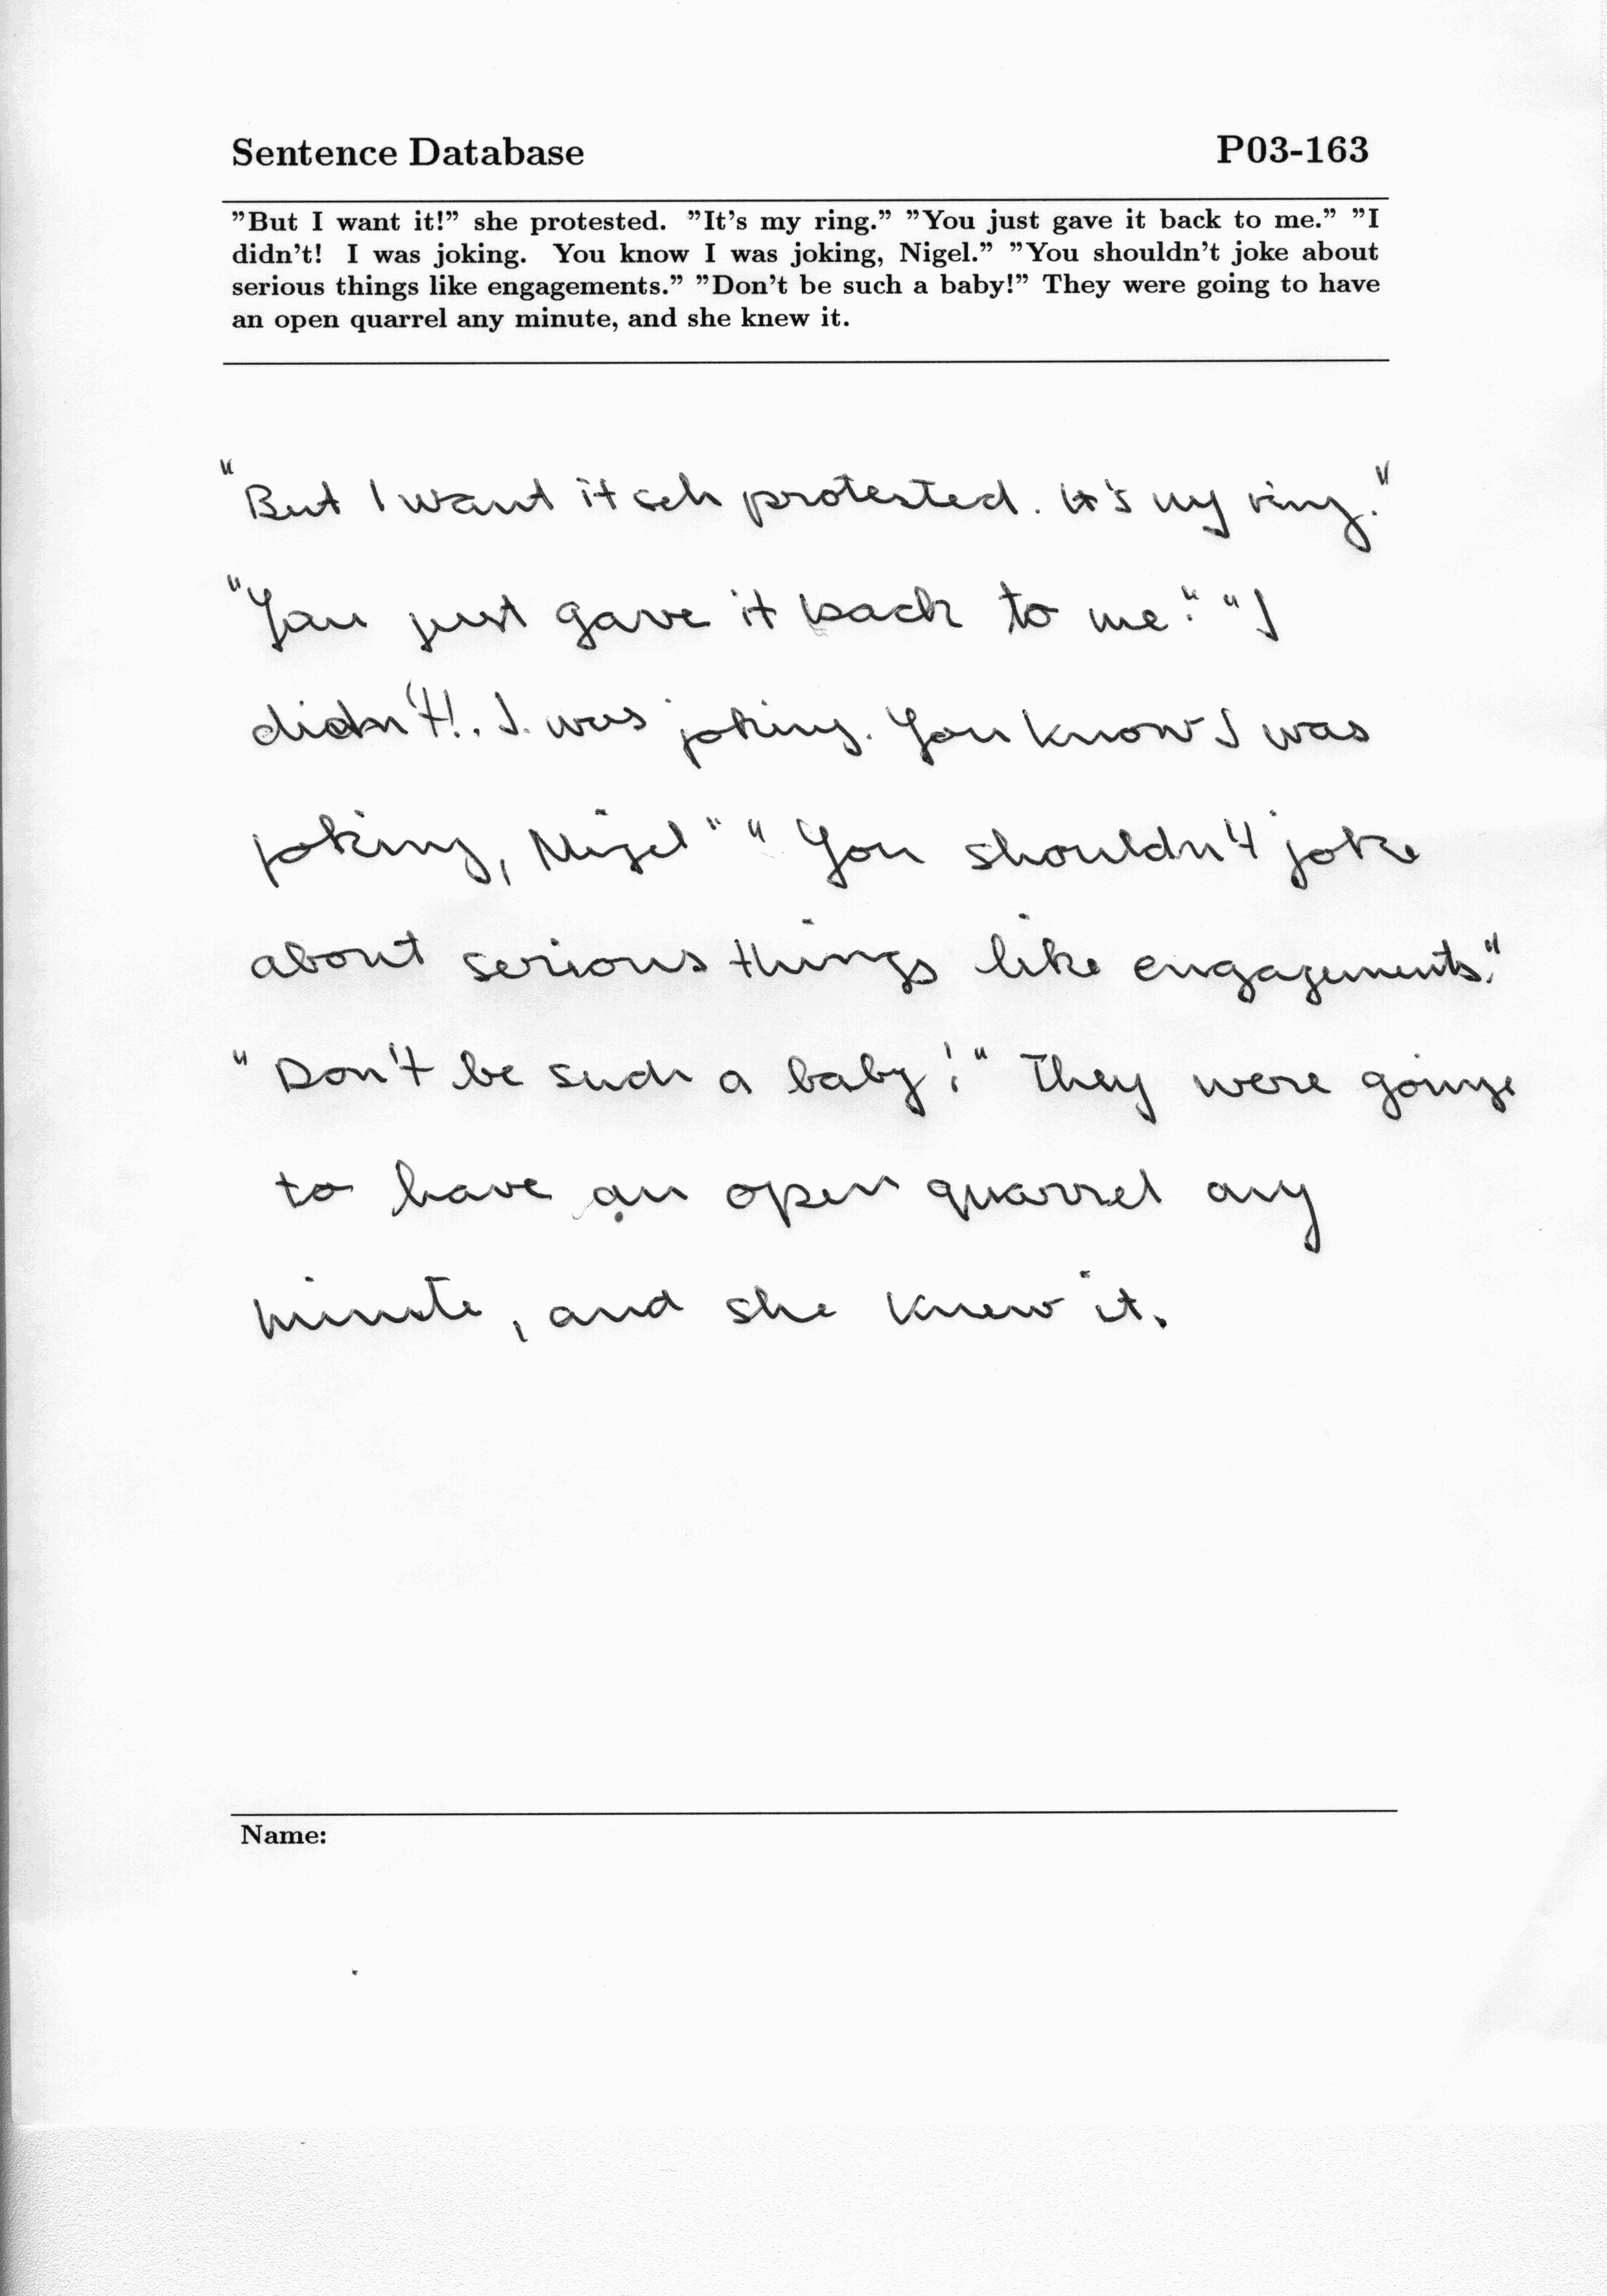 Sentence Database P03-163
”But I want it!” she protested. ”It’s my ring.” ”You just gave it back to me.” ”I
didn’t! I was joking. You know I was joking, Nigel.” ”You shouldn’t joke about
serious things like engagements.” ”Don’t be such a baby!” They were going to have
an open quarrel any minute, and she knew it.
"But I want it seh protested. It's my ring."
"You just gave it back to me." "I
didn't!. I. was joking. You know I was
joking, Nigel" "You shouldn't joke
about serious things like engagements."
"Don't be such a baby!" They were going
to have an open quarrel any
minute, and she knew it.
Name: